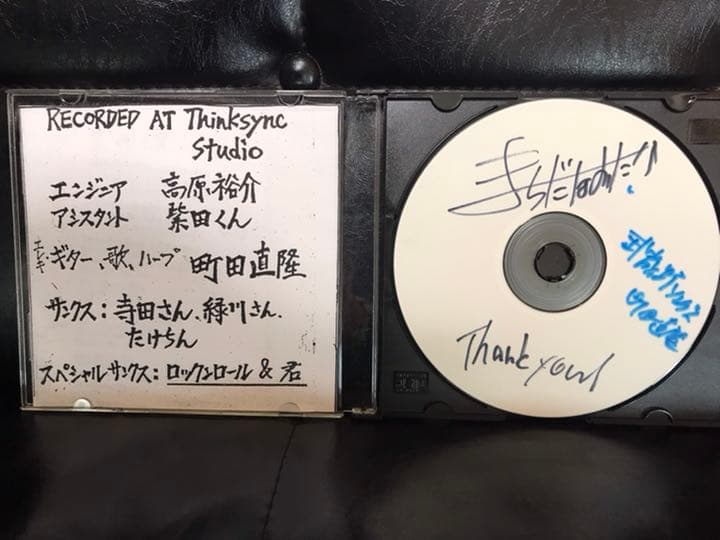 RECORDED AT Thinksync
Studio
エンジニア 高原裕介
アシスタント 柴田くん
エレキギター、歌、ハープ 町田直隆
サンクス：寺田さん、緑川さん、
たけちん
スペシャルサンクス：ロックンロール & 君
Thank you!